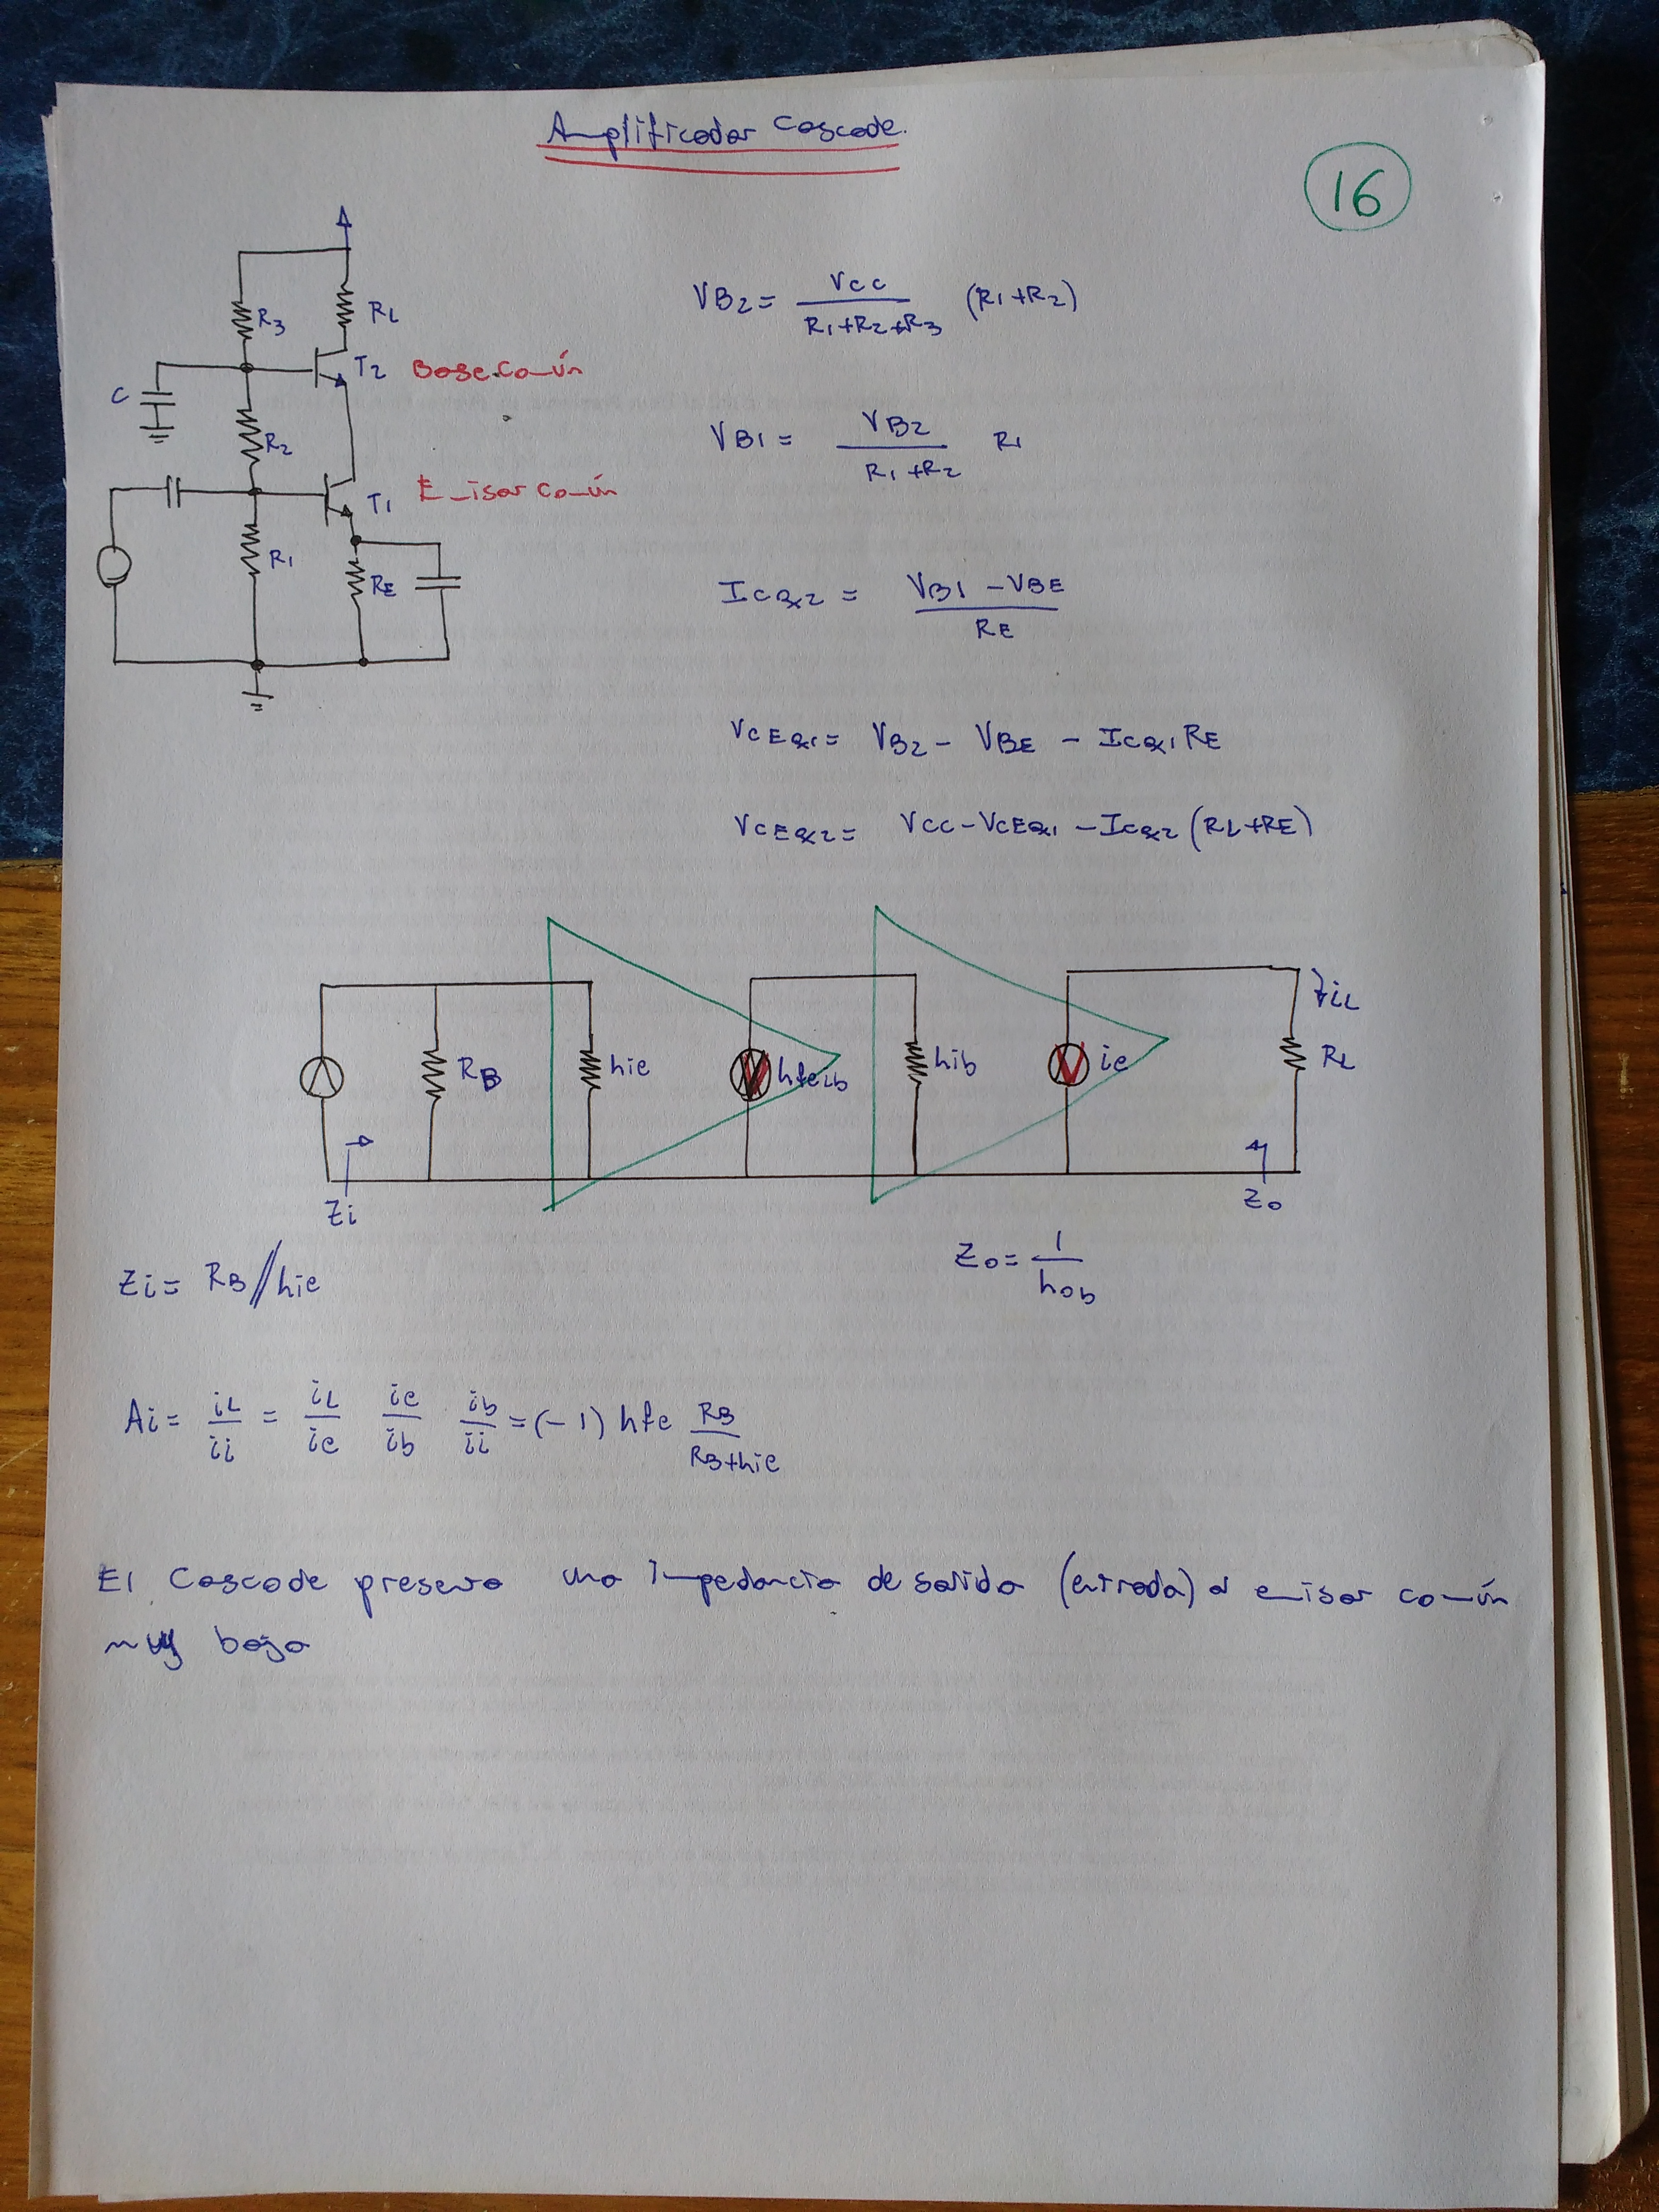 Amplificador Cascode.
16
R3
RL
C
T2 Base Común
R2
T1 Emisor Común
R1
RE
VB2 = VCC / (R1+R2+R3) (R1+R2)
VB1 = VB2 / (R1+R2) R1
ICQ2 = (VB1 - VBE) / RE
VCEQ1 = VB2 - VBE - ICQ1 RE
VCEQ2 = VCC - VCEQ1 - ICQ2 (RL+RE)
RB
hie
hfeib
hib
ie
iL
RL
Zi
Zo
Zi = RB // hie
Zo = 1 / hob
Ai = iL / ii = iL / ie ie / ib ib / ii = (-1) hfe RB / (RB+hie)
El Cascode presenta una Impedancia de salida (entrada) al emisor común
muy baja